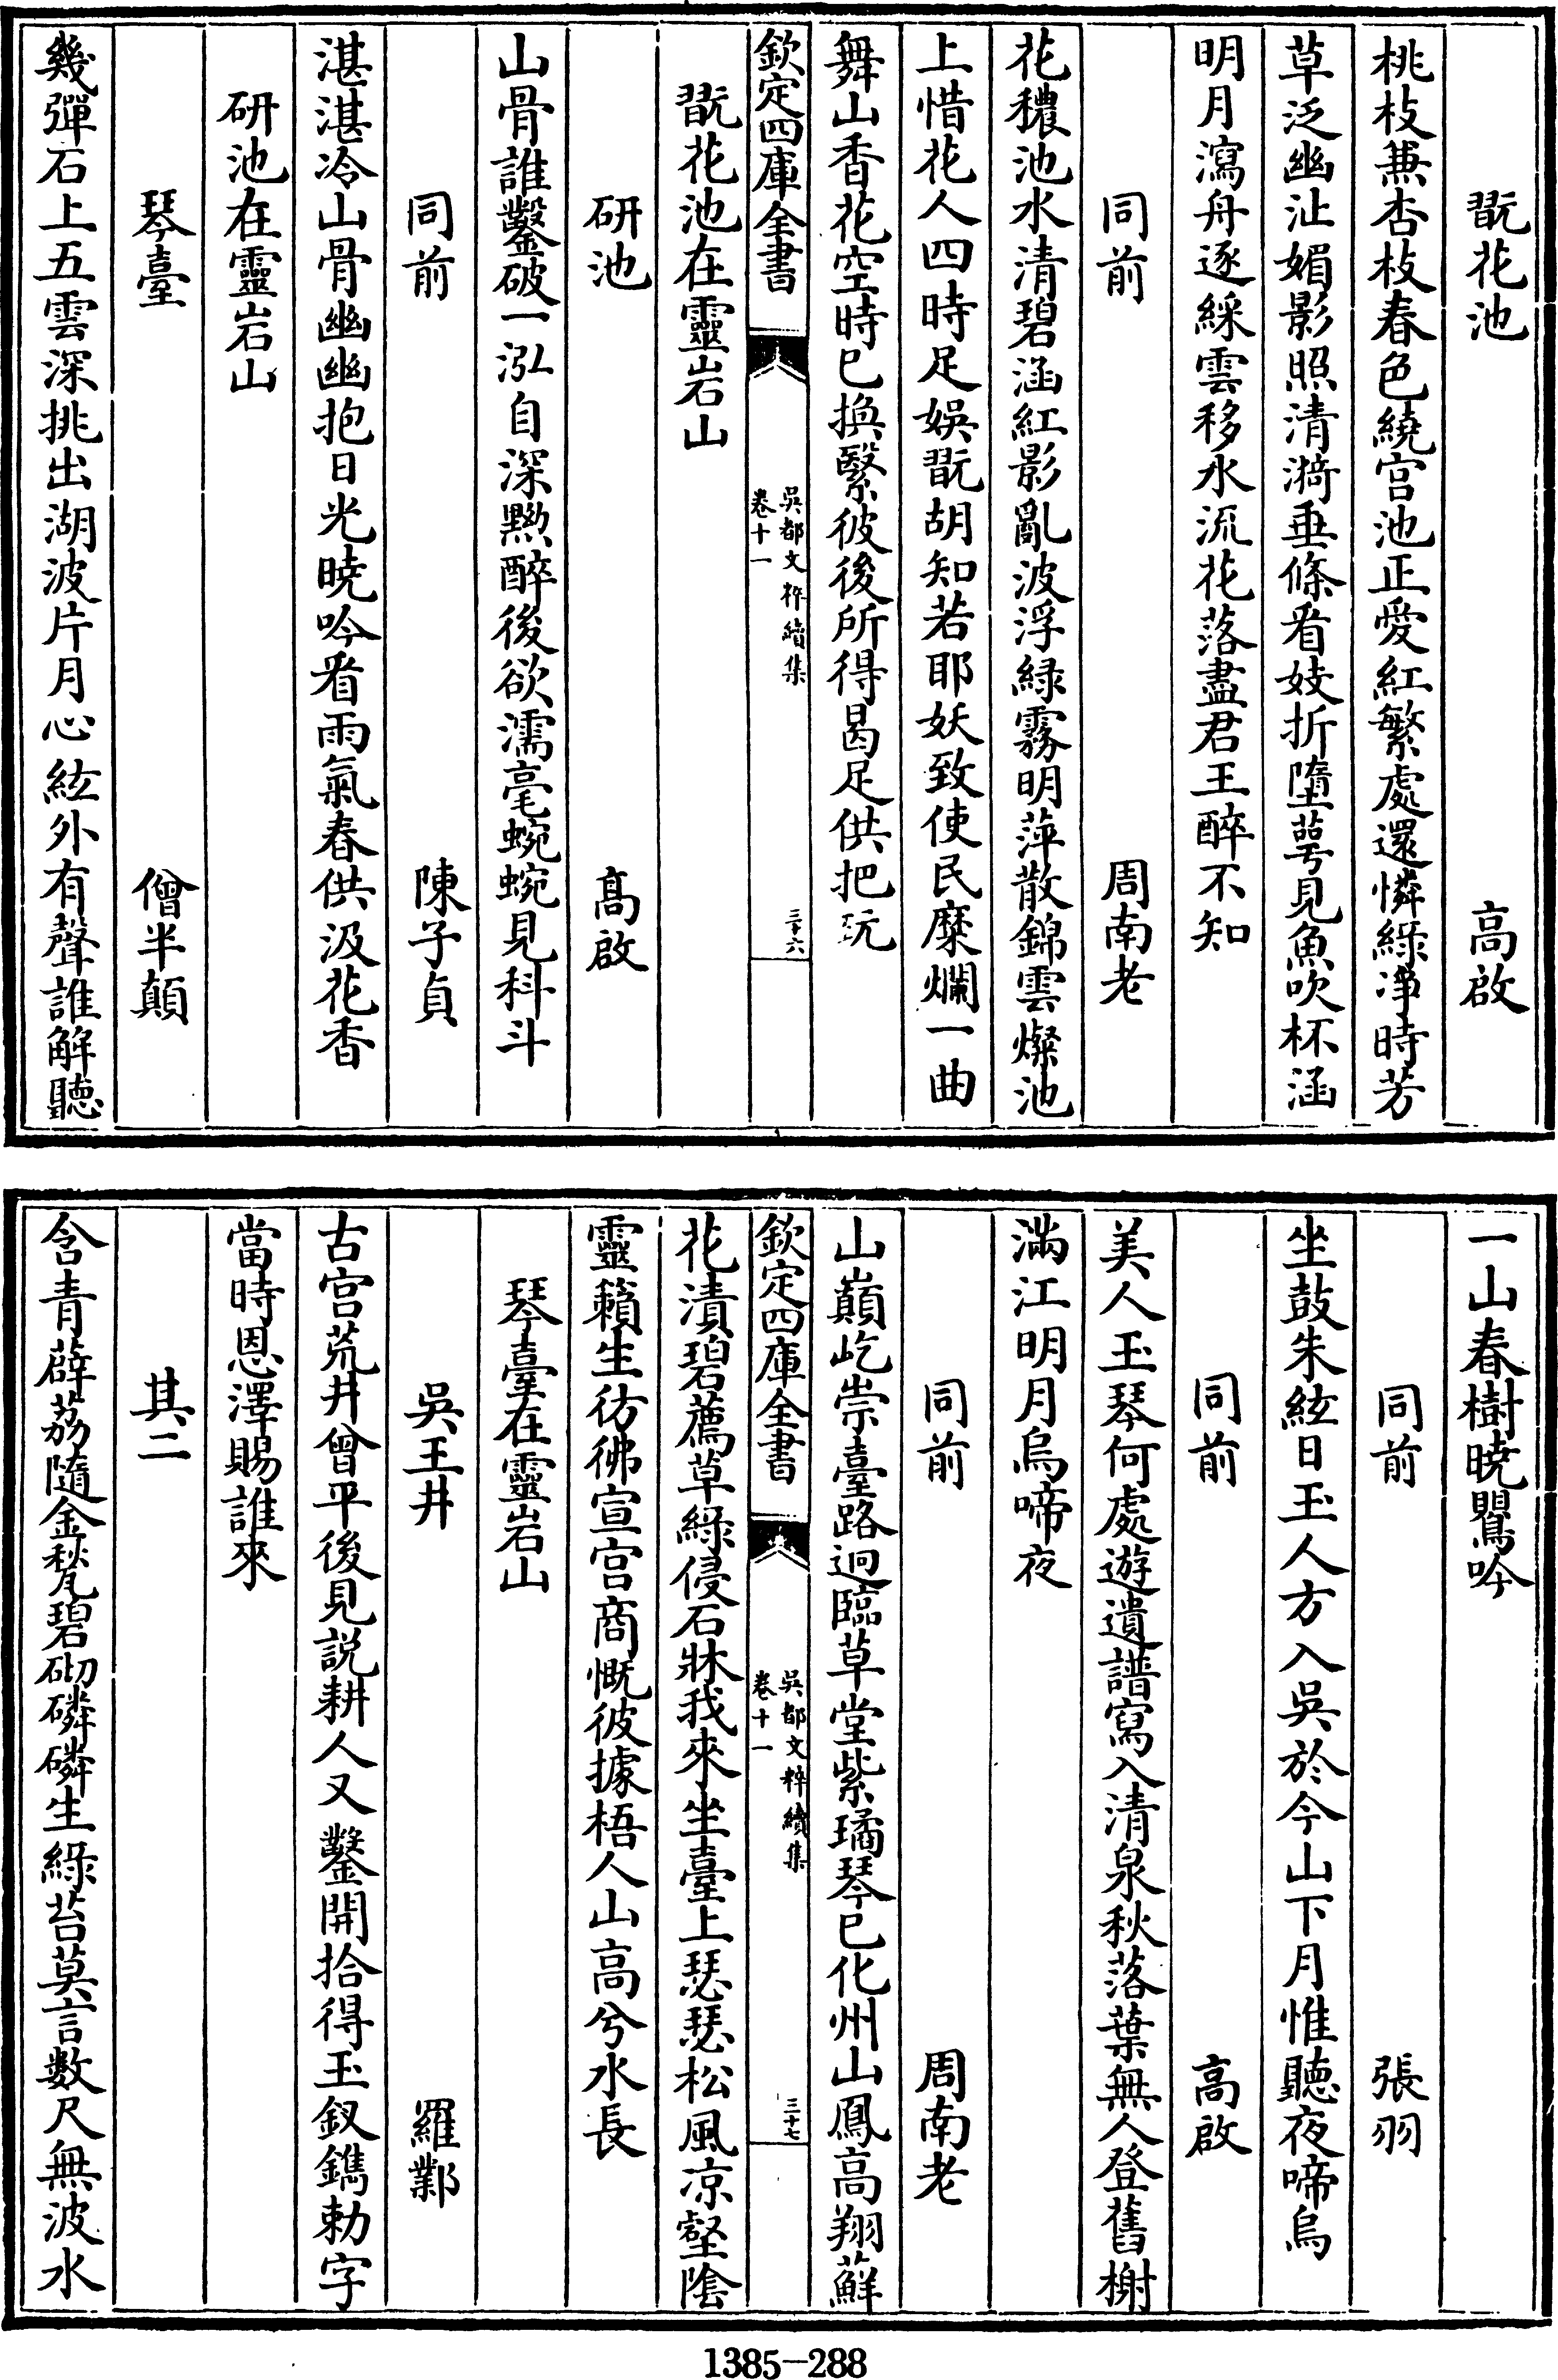 翫花池 高啟
桃枝兼杏枝春色繞宫池正愛紅繁處還憐綠淨時芳
草泛幽沚媚影照清漪垂條看妓折墮萼見魚吹杯涵
明月瀉舟逐綵雲移水流花落盡君王醉不知
同前 周南老
花穠池水清碧涵紅影亂波浮緑霧明萍散錦雲燦池
上惜花人四時足娱翫胡知若耶妖致使民糜爛一曲
舞山香花空時已換繄彼後所得曷足供把玩
欽定四庫全書 吳都文粹續集 卷十一 三十六
翫花池在靈岩山
研池 高啟
山骨誰鑿破一泓自深黝醉後欲濡毫蜿蜿見科斗
同前 陳子貞
湛湛冷山骨幽幽抱日光曉吟看雨氣春供汲花香
研池在靈岩山
琴臺 僧半顛
幾彈石上五雲深挑出湖波片月心絃外有聲誰解聽
一山春樹曉鸎吟
同前 張羽
坐鼓朱絃日玉人方入吳於今山下月惟聽夜啼烏
同前 高啟
美人玉琴何處遊遺譜寫入清泉秋落葉無人登舊榭
滿江明月烏啼夜
同前 周南老
山巔屹崇臺路迥臨草堂紫璚琴已化州山鳳高翔蘚
欽定四庫全書 吳都文粹續集 卷十一 三十七
花漬碧薦草綠侵石牀我來坐臺上瑟瑟松風凉壑陰
靈籟生彷彿宣宫商慨彼據梧人山高兮水長
琴臺在靈岩山
吳王井 羅鄴
古宫荒井曾平後見説耕人又鑿開拾得玉釵鐫勅字
當時恩澤賜誰來
其二
含青薜荔隨金甃碧砌磷磷生綠苔莫言數尺無波水
1385-288